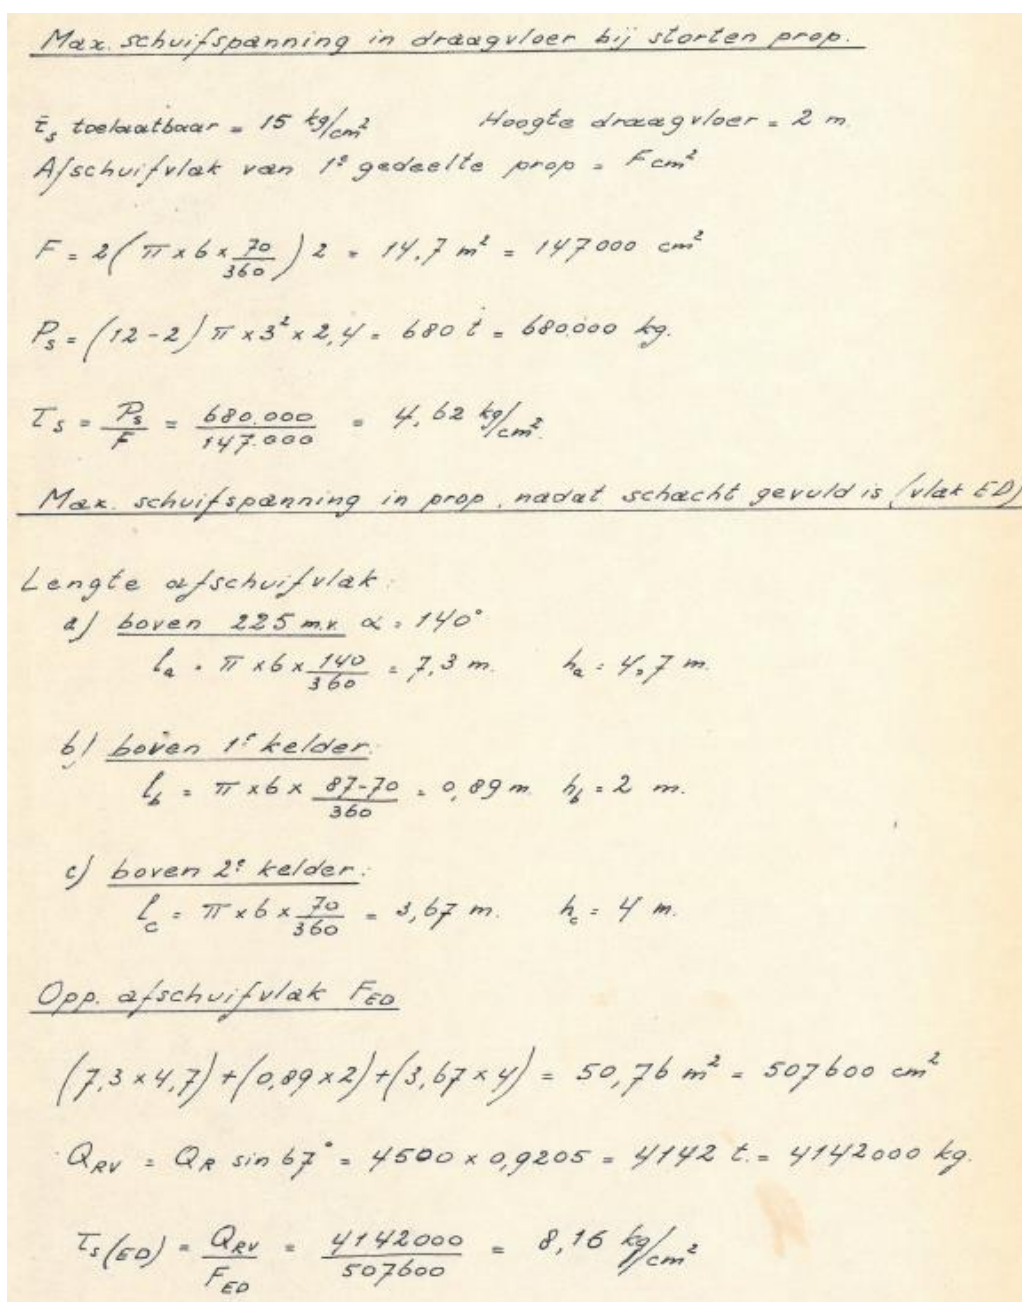 Max. schuifspanning in draagvloer bij storten prop.
τ̄s toelaatbaar = 15 kg/cm² Hoogte draagvloer = 2 m.
Afschuifvlak van 1e gedeelte prop = F cm²
F = 2(π x 6 x 70/360) 2 = 14,7 m² = 147000 cm²
Ps = (12-2) π x 3² x 2,4 = 680 t = 680.000 kg.
τs = Ps/F = 680.000/147.000 = 4,62 kg/cm².
Max. schuifspanning in prop, nadat schacht gevuld is (vlak ED)
Lengte afschuifvlak:
a) boven 225 m.v. α = 140°
la = π x 6 x 140/360 = 7,3 m. ha = 4,7 m.
b) boven 1e kelder:
lb = π x 6 x 87-70/360 = 0,89 m. hb = 2 m.
c) boven 2e kelder:
lc = π x 6 x 70/360 = 3,67 m. hc = 4 m.
Opp. afschuifvlak FED
(7,3 x 4,7) + (0,89 x 2) + (3,67 x 4) = 50,76 m² = 507600 cm²
QRV = QR sin 67° = 4500 x 0,9205 = 4142 t. = 4142000 kg.
τs(ED) = QRV/FED = 4142000/507600 = 8,16 kg/cm²